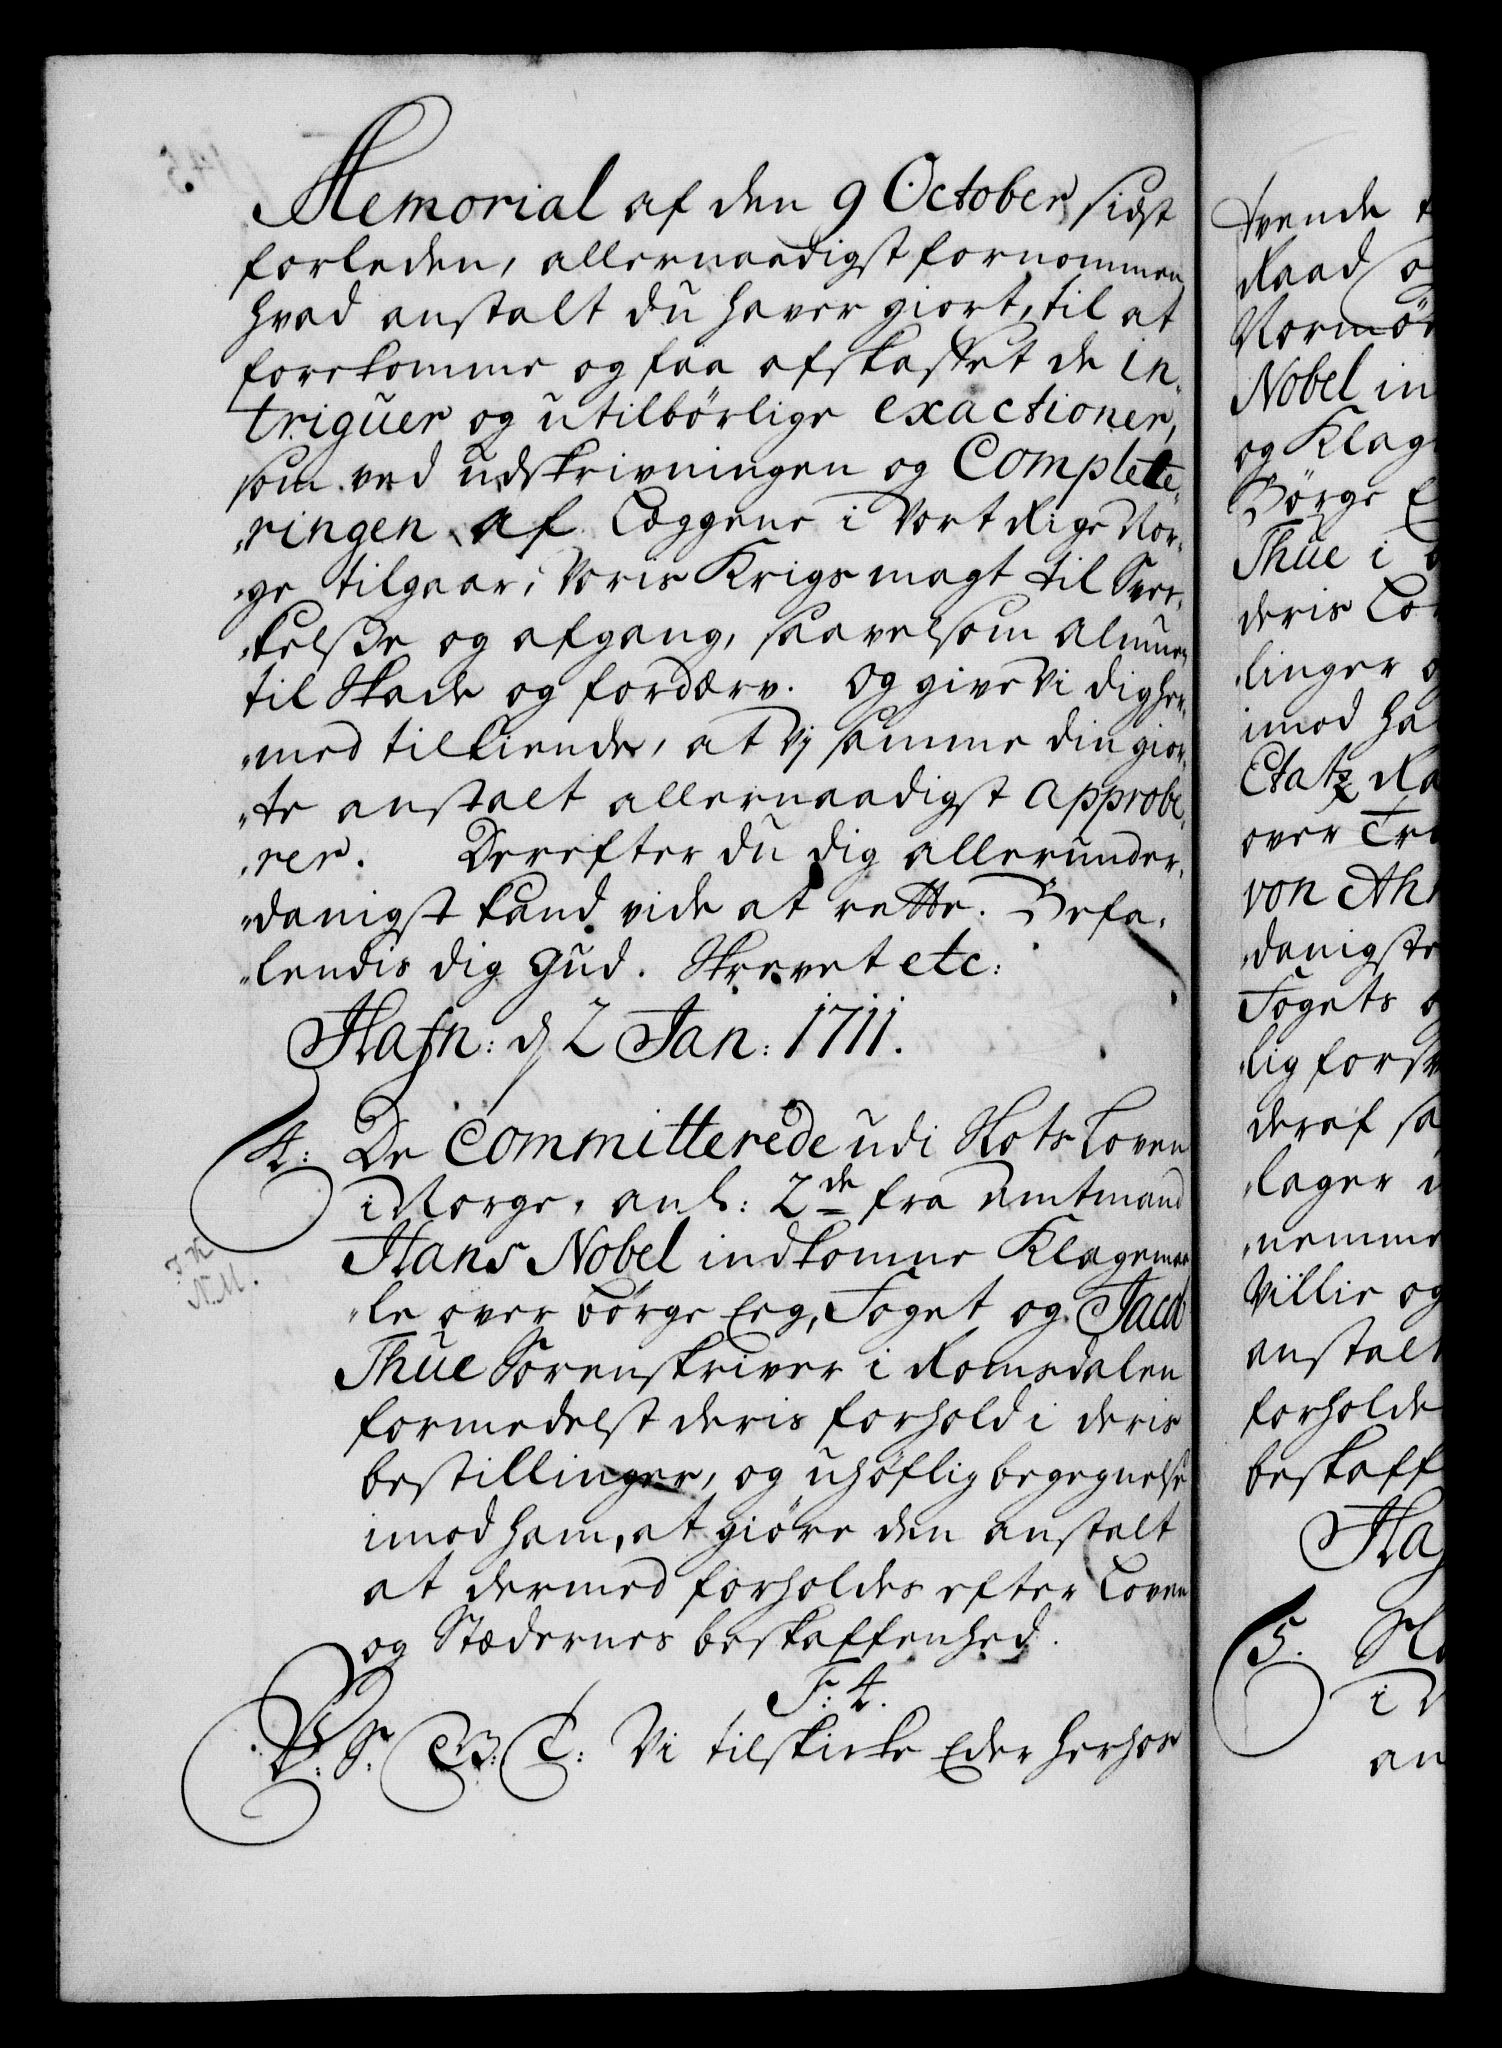 Memorial af den 9 October sidst
forleden, allernaadigst fornommen
hvad anstalt du haver giort, til at
forekomme og faa afskaffet de in-
triguer og utilbörlige exactioner,
som ved udskrivningen og Complete-
ringen af Læggene i Vort Rige Nor-
ge tilgaar, Voris Krigsmagt til Svec-
kelse og afgang, saavelsom Almuen
til Skade og fordærv. Og give Vi dig her-
med tilkiende, at Vj samme din gior-
te anstalt allernaadigst approbe-
rer. Derefter du dig allerunder-
danigst kand vide at rette. Befa-
lendis dig Gud. Skrevet etc:
Hafn: d 2 Jan: 1711.
4: De Committerede udi Slots Loven
i Norge, anl: 2de fra Amtmand
Hans Nobel indkomne Klagemaa-
le over Börge Eeg, Foget og Jacob
Thue Sorenskriver i Romsdalen
formedelst deris forhold i deris
bestillinger, og uhöflig begegnelse
imod ham, at giöre den anstalt
at dermed forholdes efter Loven
og Stædernes beskaffenhed.
F: 4.
V: S: G: T: Vi tilskicke Eder herhos
N.M.
tvende
Raad
Nobel in
og
Börge E
Thüe i
deris
linger
imod
Etatz
over
von
danigste
Fogets
lig
deraf
lager
nemme
Villie og
anstalt
forholde
beskaff
Haf
5.
i
an